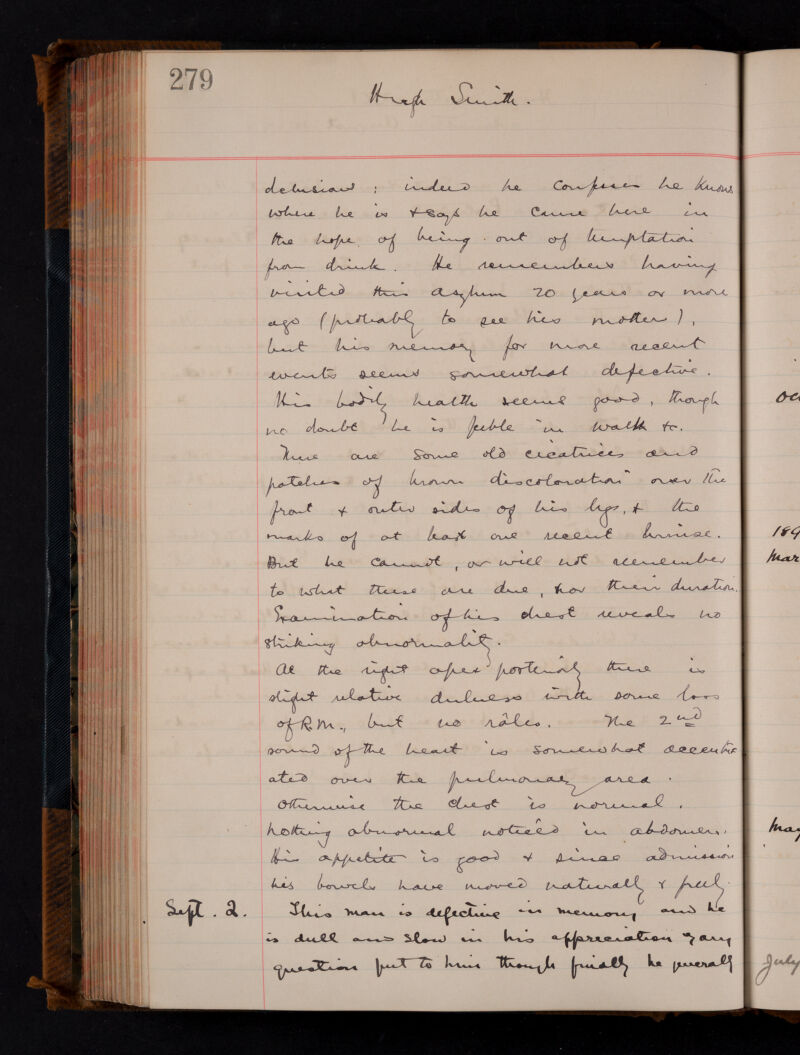 279
Hugh Smith.
delusions ; indeed he confesses he knows
where he is & says he came here in
the hope of being out of temptation
from drink. He remembers having
visited this asylum 20 years or more
ago (probably to see his mother),
but his memory for more recent
events seems somewhat defective.
His bodily health seems good, though
no doubt he is feeble in walk &c.
There are some old cicatrices and
patches of brown discolouration over the
front & outer sides of his legs, & the
marks of at least one recent bruise.
But he cannot, or will not remember
to what these are due, nor their duration.
Examination of his chest reveals no
striking abnormality.
At the right apex posteriorly there is
slight relative dulness with some loss
of R.M., but no râles. The 2nd
sound of the heart is somewhat accentu
ated over the pulmonary area.
Otherwise the chest is normal.
Nothing abnormal noticed in abdomen.
His appetite is good & since admission
his bowels have moved naturally & freely.
Sept. 2. This man is defective in memory and he
is dull and slow in his appreciation of any
question put to him though finally he generally
Oc
189
Mar
May
July